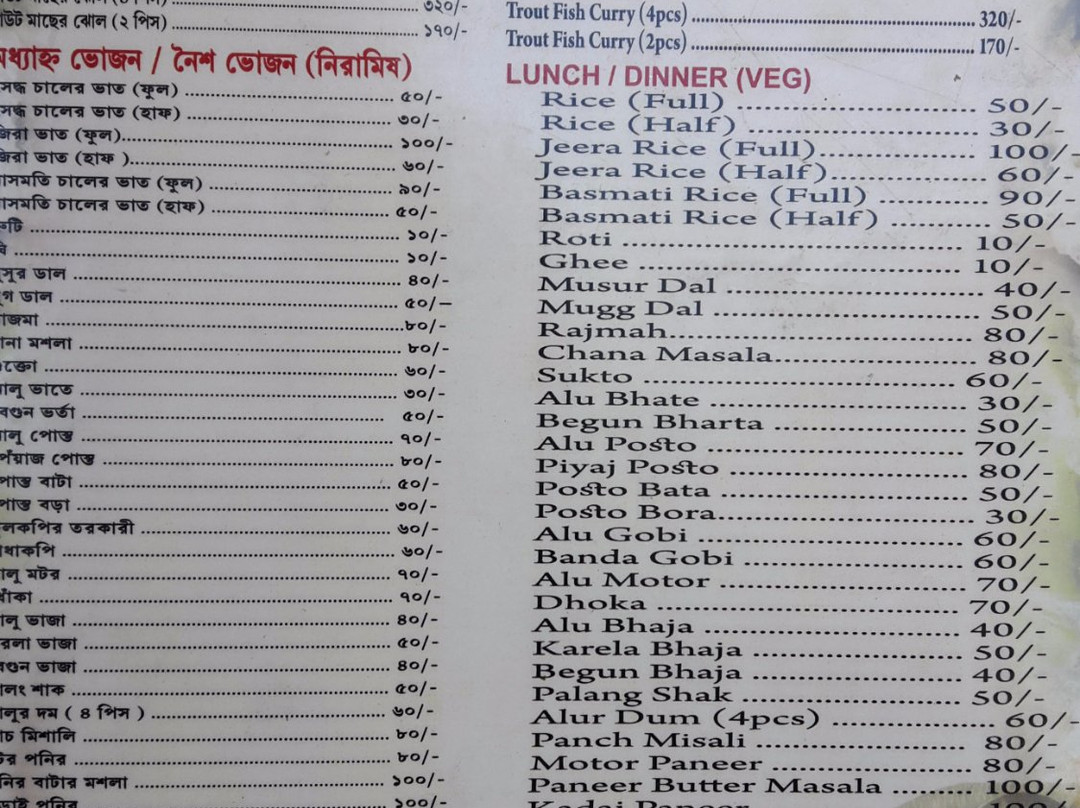 মাছের ঝোল (২ পিস) ........ ১৭০/-
ভোজন / নৈশ ভোজন (নিরামিষ)
চালের ভাত (ফুল) ........ ৫০/-
চালের ভাত (হাফ) ........ ৩০/-
ভাত (ফুল)........ ১০০/-
ভাত (হাফ )........ ৬০/-
চালের ভাত (ফুল) ........ ৯০/-
চালের ভাত (হাফ) ........ ৫০/-
........ ১০/-
........ ১০/-
ডাল ........ ৪০/-
ডাল ........ ৫০/-
........ ৮০/-
মশলা ........ ৮০/-
........ ৬০/-
ভাতে ........ ৩০/-
ভর্তা ........ ৫০/-
পোস্ত ........ ৭০/-
পোস্ত ........ ৮০/-
বাটা ........ ৫০/-
বড়া ........ ৩০/-
তরকারী ........ ৬০/-
........ ৬০/-
মটর ........ ৭০/-
........ ৭০/-
ভাজা ........ ৪০/-
ভাজা ........ ৫০/-
ভাজা ........ ৪০/-
শাক ........ ৫০/-
দম ( ৪ পিস ) ........ ৬০/-
মিশালি ........ ৮০/-
পনির ........ ৮০/-
বাটার মশলা ........ ১০০/-
পনির ........ ১০০/-
Trout Fish Curry (4pcs) ........ 320/-
Trout Fish Curry (2pcs) ........ 170/-
LUNCH / DINNER (VEG)
Rice (Full) ........ 50/-
Rice (Half) ........ 30/-
Jeera Rice (Full)........ 100/-
Jeera Rice (Half)........ 60/-
Basmati Rice (Full) ........ 90/-
Basmati Rice (Half) ........ 50/-
Roti ........ 10/-
Ghee ........ 10/-
Musur Dal ........ 40/-
Mugg Dal ........ 50/-
Rajmah........ 80/-
Chana Masala........ 80/-
Sukto ........ 60/-
Alu Bhate ........ 30/-
Begun Bharta ........ 50/-
Alu Posto ........ 70/-
Piyaj Posto ........ 80/-
Posto Bata ........ 50/-
Posto Bora........ 30/-
Alu Gobi ........ 60/-
Banda Gobi ........ 60/-
Alu Motor ........ 70/-
Dhoka ........ 70/-
Alu Bhaja ........ 40/-
Karela Bhaja ........ 50/-
Begun Bhaja ........ 40/-
Palang Shak ........ 50/-
Alur Dum (4pcs) ........ 60/-
Panch Misali ........ 80/-
Motor Paneer ........ 80/-
Paneer Butter Masala ........ 100/-
Kadai Paneer